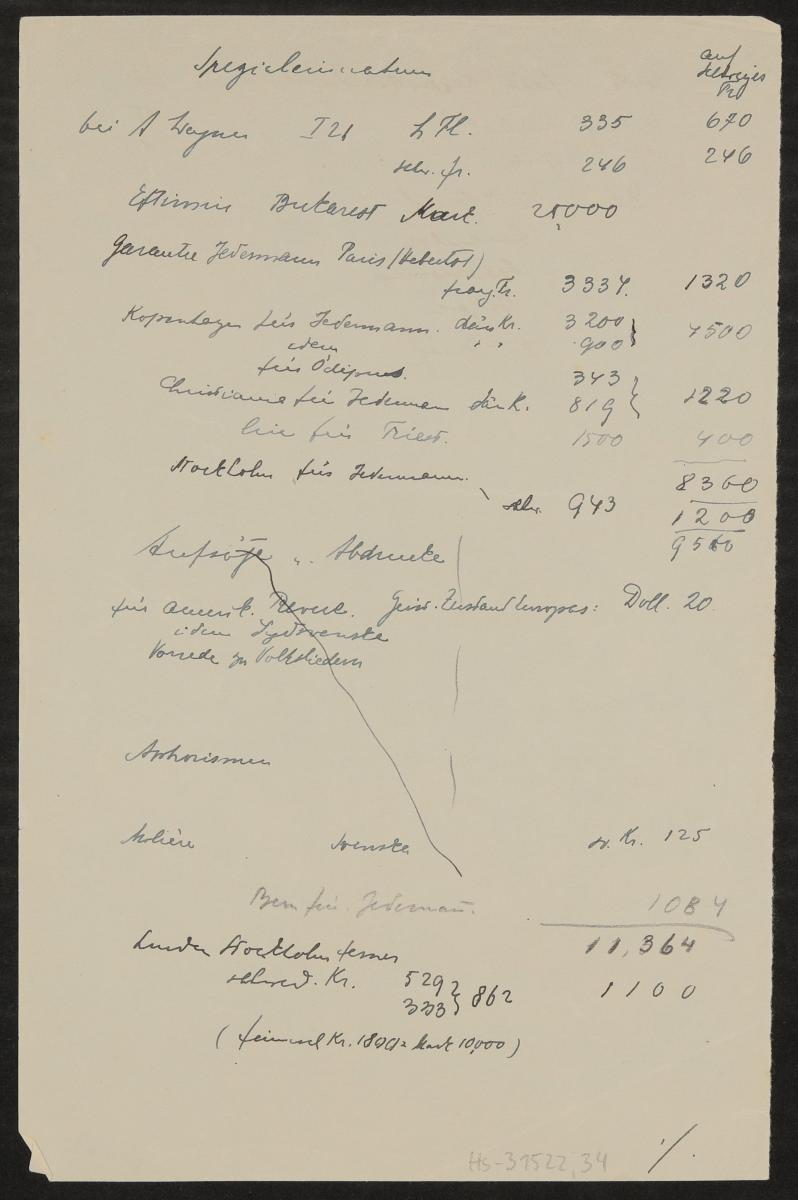 Spezialeinnahmen
auf
Schweizer
Fr
bei A Wagner I 21 h Fl. 335 670
schw. fr. 246 246
Eftimiu Bukarest Mark. 25,000
Garantie Jedermann Paris (Hebertot)
franz. Fr. 3334. 1320
Kopenhagen für Jedermann. dän Kr. 3200
idem " " 900 4500
für Ödipus. 343
Christiania für Jederman dän K. 819 1220
Lire für Triest. 1500 400
8360
Stockholm für Jedermann.
schw. 943 1200
9560
Aufsätze u. Abdrucke
für amerik. Revue. Geist. Zustand Europas: Doll. 20
idem Sydsvenska
Vorrede zu Volksliedern
Aphorismen
Molière svenska sv. Kr. 125
Bern für Jederman. 1084
11,364
Stockholm ferner
schwed. Kr. 529
333 862 1100
Kr. 1800 = Mark 10,000)
./.
Hs-31522,34